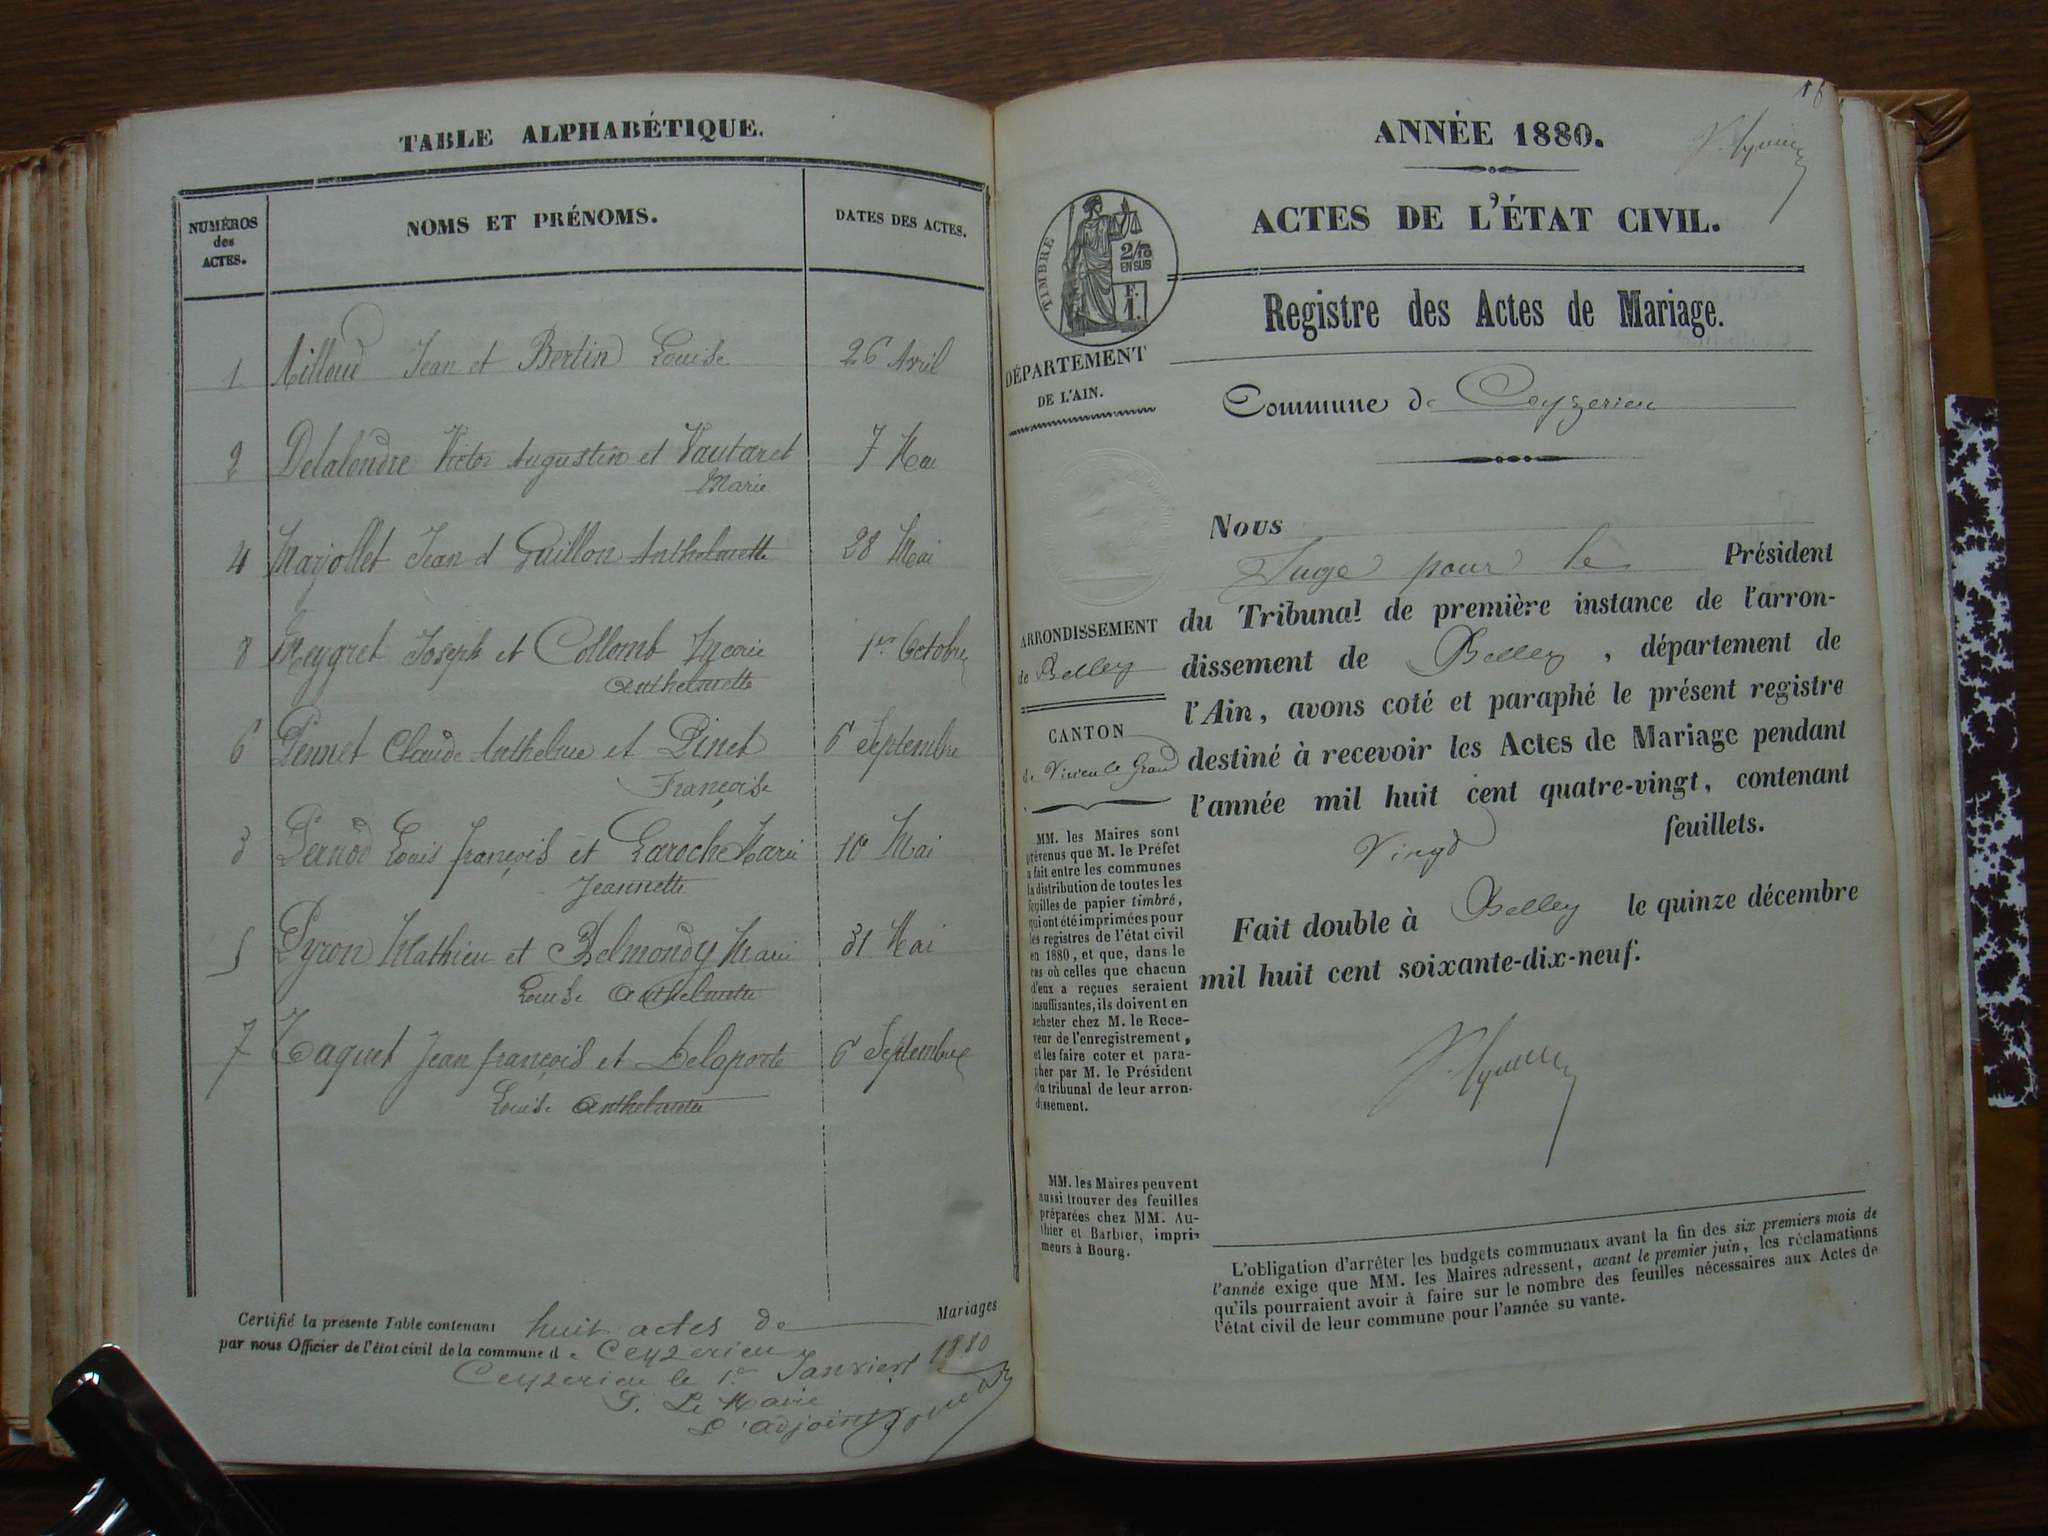 TABLE ALPHABÉTIQUE.
NUMÉROS des ACTES.
NOMS ET PRÉNOMS.
DATES DES ACTES.
1 Milloud Jean et Bertin Louise 26 Avril
2 Delalendre Victor Augustin et Vautaret 7 Mai
Marie
4 Marjollet Jean et Guillon Anthelmette 28 Mai
8 Meygret Joseph et Collomb 1er Octobre
Anthelmette
6 Pennet Claude Anthelme et Pinet 6 Septembre
Françoise
3 Pernod Louis françois et Laroche Marie 10 Mai
Jeannette
5 Pyron Mathieu et Belmondy Marie 31 Mai
Louise Anthelmette
7 Taquet Jean françois et Delaporte 6 Septembre
Louise Anthelmette
Certifié la présente Table contenant huit actes de Mariages
par nous Officier de l'état civil de la commune de Ceyzerieu
Ceyzerieu le 1er Janvier 1880
P. Le Maire
L'adjoint
ANNÉE 1880.
ACTES DE L'ÉTAT CIVIL.
TIMBRE
2/10
EN SUS
F.
1.
Registre des Actes de Mariage.
DÉPARTEMENT
DE L'AIN.
Commune de Ceyzerieu
Nous
Juge pour le Président
du Tribunal de première instance de l'arron-
dissement de Belley, département de
l'Ain, avons coté et paraphé le présent registre
destiné à recevoir les Actes de Mariage pendant
l'année mil huit cent quatre-vingt, contenant
Vingt feuillets.
Fait double à Belley le quinze décembre
mil huit cent soixante-dix-neuf.
ARRONDISSEMENT
de Belley
CANTON
de Virieu le Grand
MM. les Maires sont
prévenus que M. le Préfet
a fait entre les communes
la distribution de toutes les
feuilles de papier timbré,
qui ont été imprimées pour
les registres de l'état civil
en 1880, et que, dans le
cas où celles que chacun
d'eux a reçues seraient
insuffisantes, ils doivent en
acheter chez M. le Rece-
veur de l'enregistrement,
et les faire coter et para-
pher par M. le Président
du tribunal de leur arron-
dissement.
MM. les Maires peuvent
aussi trouver des feuilles
préparées chez MM. Au-
thier et Barbier, impri-
meurs à Bourg.
L'obligation d'arrêter les budgets communaux avant la fin des six premiers mois de
l'année exige que MM. les Maires adressent, avant le premier juin, les réclamations
qu'ils pourraient avoir à faire sur le nombre des feuilles nécessaires aux Actes de
l'état civil de leur commune pour l'année su vante.